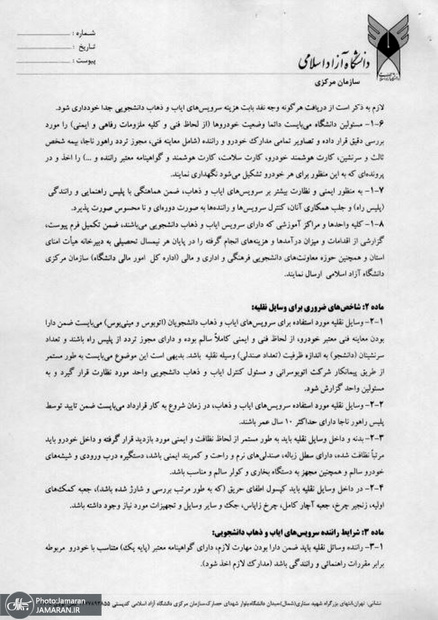 شماره :
تاریخ :
پیوست :
دانشگاه آزاد اسلامی
سازمان مرکزی
لازم به ذکر است از دریافت هرگونه وجه نقد بابت هزینه سرویس‌های ایاب و ذهاب دانشجویی جدا خودداری شود.
۱-۶- مسئولین دانشگاه می‌بایست دائما وضعیت خودروها (از لحاظ فنی و کلیه ملزومات رفاهی و ایمنی) را مورد
بررسی دقیق قرار داده و تصاویر تمامی مدارک خودرو و راننده (شامل معاینه فنی، مجوز تردد راهور ناجا، بیمه شخص
ثالث و سرنشین، کارت هوشمند خودرو، کارت سلامت، کارت هوشمند و گواهینامه معتبر راننده و ...) را اخذ و در
پرونده‌ای که به این منظور برای هر خودرو تشکیل می‌شود نگهداری نمایند.
۱-۷- به منظور ایمنی و نظارت بیشتر بر سرویس‌های ایاب و ذهاب، ضمن هماهنگی با پلیس راهنمایی و رانندگی
(پلیس راه) و جلب همکاری آنان، کنترل سرویس‌ها و راننده‌ها به صورت دوره‌ای و نا محسوس صورت پذیرد.
۱-۸- کلیه واحدها و مراکز آموزشی که دارای سرویس های ایاب و ذهاب دانشجویی می‌باشند، ضمن تکمیل فرم پیوست،
گزارشی از اقدامات و میزان درآمدها و هزینه‌های انجام گرفته را در پایان هر نیمسال تحصیلی به دبیرخانه هیأت امنای
استان و همچنین حوزه معاونت‌های دانشجویی فرهنگی و اداری و مالی (اداره کل امور مالی دانشگاه) سازمان مرکزی
دانشگاه آزاد اسلامی ارسال نمایند.
ماده ۲: شاخص‌های ضروری برای وسایل نقلیه:
۲-۱- وسایل نقلیه مورد استفاده برای سرویس‌های ایاب و ذهاب دانشجویان (اتوبوس و مینی‌بوس) می‌بایست ضمن دارا
بودن معاینه فنی معتبر خودرو، از لحاظ فنی و ایمنی کاملاً سالم بوده و دارای مجوز تردد از پلیس راه باشند و تعداد
سرنشینان (دانشجو) به اندازه ظرفیت (تعداد صندلی) وسیله نقلیه باشد. بدیهی است این موضوع می‌بایست به طور مستمر
از طریق پیمانکار شرکت اتوبوسرانی و مسئول کنترل ایاب و ذهاب دانشجویی واحد مورد نظارت قرار گیرد و به
مسئولین واحد گزارش شود.
۲-۲- وسایل نقلیه مورد استفاده سرویس‌های ایاب و ذهاب، در زمان شروع به کار قرارداد می‌بایست ضمن تایید توسط
پلیس راهور ناجا دارای حداکثر ۱۰ سال عمر باشند.
۲-۳- بدنه و داخل وسایل نقلیه باید به طور مستمر از لحاظ نظافت و ایمنی مورد بازدید قرار گرفته و داخل خودرو باید
مرتباً نظافت شده، دارای سطل زباله، صندلی‌های نرم و راحت و کمربند ایمنی باشد، دستگیره درب ورودی و شیشه‌های
خودرو سالم و همچنین مجهز به دستگاه بخاری و کولر سالم و مناسب باشد.
۲-۴- در داخل وسایل نقلیه باید کپسول اطفای حریق (که به طور مرتب بررسی و شارژ شده باشد)، جعبه کمک‌های
اولیه، زنجیر چرخ، جعبه آچار کامل، چرخ زاپاس، جک و سایر وسایل و تجهیزات مورد نیاز وجود داشته باشد.
ماده ۳: شرایط راننده سرویس‌های ایاب و ذهاب دانشجویی:
۳-۱- راننده وسائل نقلیه باید ضمن دارا بودن مهارت لازم، دارای گواهینامه معتبر (پایه یک) متناسب با خودرو مربوطه
برابر مقررات راهنمائی و رانندگی باشد (مدارک لازم اخذ شود).
نشانی: تهران،انتهای بزرگراه شهید ستاری(شمال)،میدان دانشگاه،بلوار شهدای حصارک،سازمان مرکزی دانشگاه آزاد اسلامی کدپستی
Photo:Jamaran
JAMARAN.IR